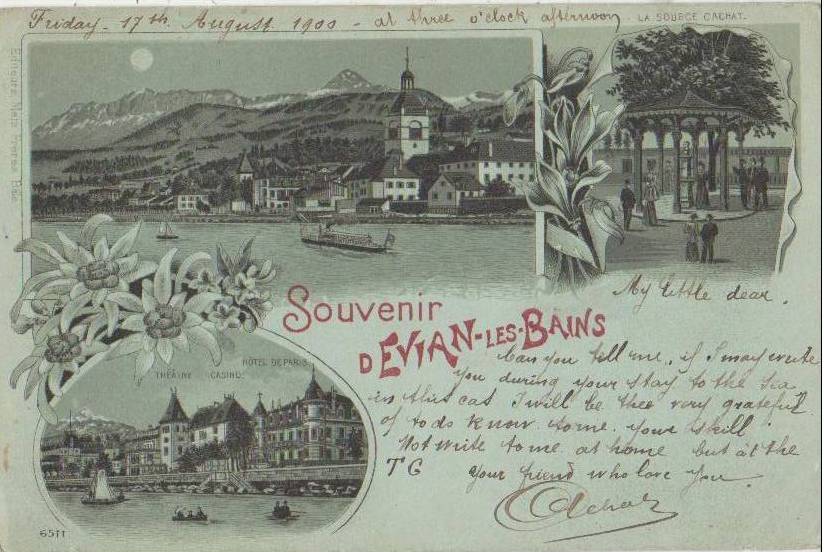 Friday - 17th. August. 1900 - at three o'clock afternoon
LA SOURCE CACHAT.
Editeurs Metz Frères Bâle
My little dear.
Souvenir
D'EVIAN-LES-BAINS
Can you tell me, if I may write
you during your stay to the Sea
in this cas I will be thee very grateful
of to do know to me your skill
Not write to me at home but at the
T G your friend who love you.
HÔTEL DE PARIS.
THÉATRE CASINO.
6511